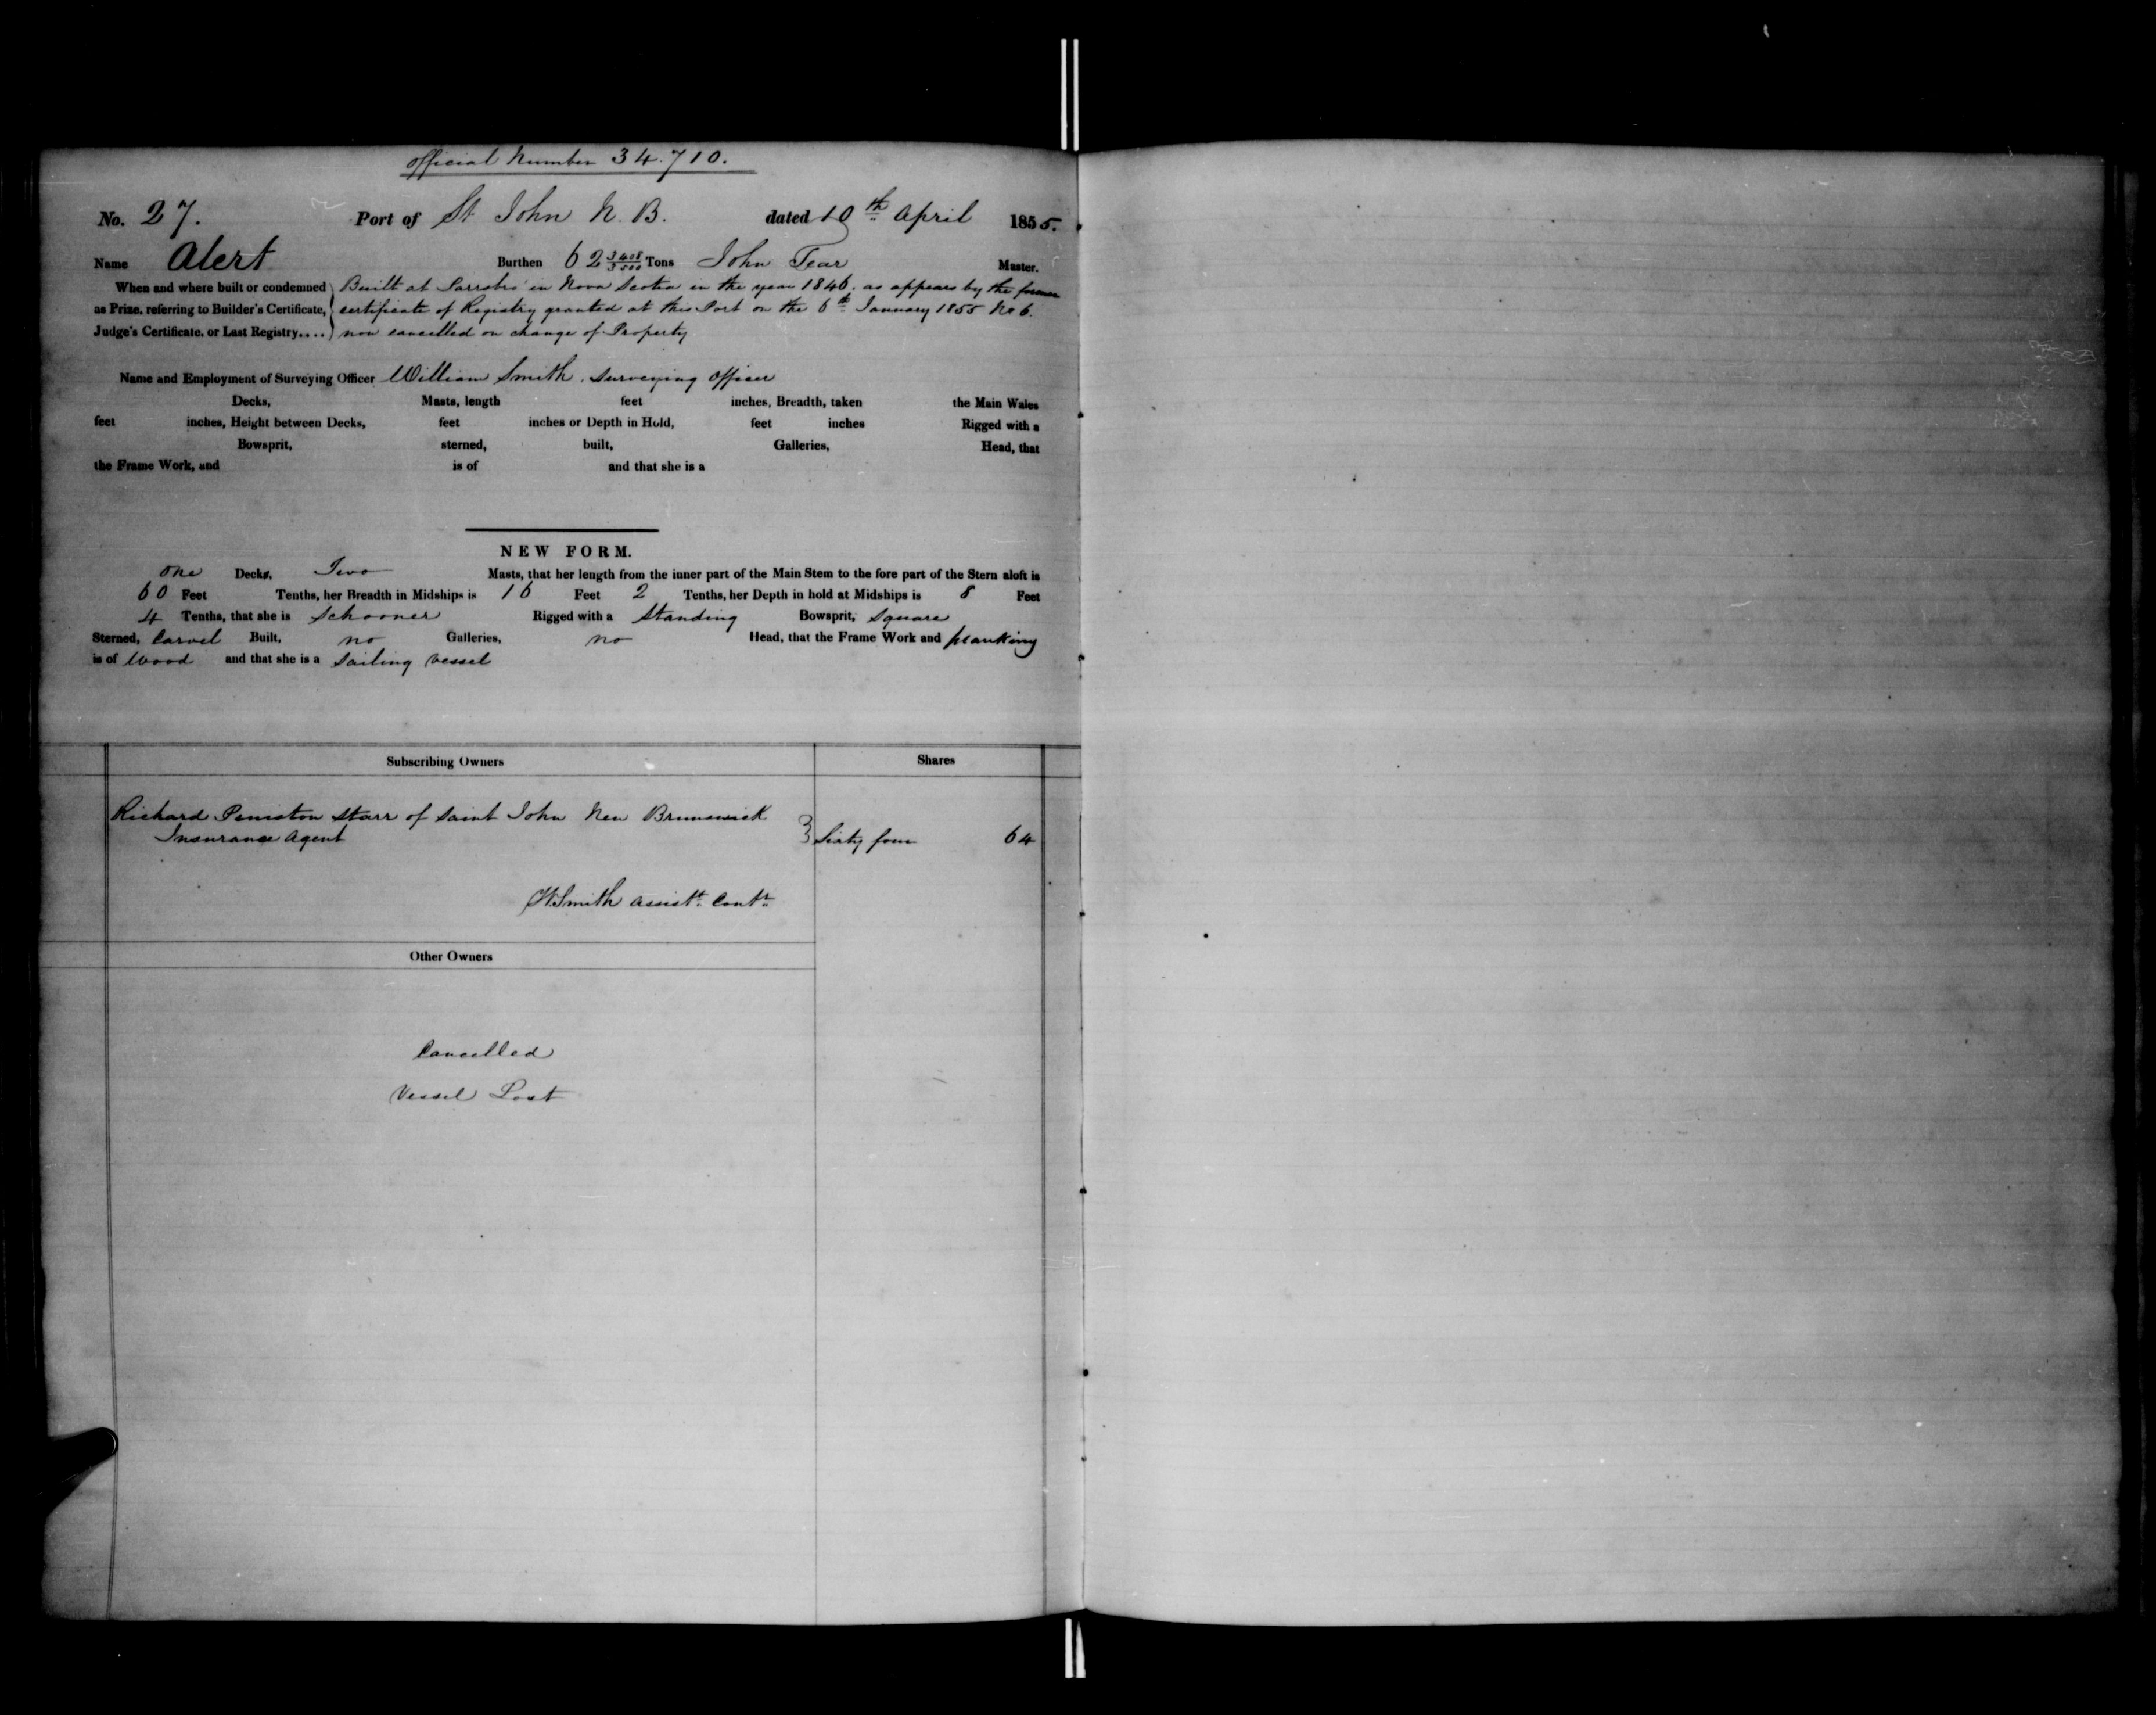 Official Number 34.710.
No. 27. Port of St John N. B. dated 10th April 1855.
Name Alert Burthen 62 3408/3500 Tons John Tear Master.
When and where built or condemned as Prize, referring to Builder's Certificate, Judge's Certificate, or Last Registry....
Built at in Nova Scotia in the year 1846. as appears by the former
certificate of Registry granted at this Port on the 6th January 1855 No 6.
now cancelled on change of Property
Name and Employment of Surveying Officer William Smith, Surveying Officer
Decks, Masts, length feet inches, Breadth, taken the Main Wales
feet inches, Height between Decks, feet inches or Depth in Hold, feet inches Rigged with a
Bowsprit, sterned, built, Galleries, Head, that
the Frame Work, and is of and that she is a
NEW FORM.
One Decks, Two Masts, that her length from the inner part of the Main Stem to the fore part of the Stern aloft is
60 Feet Tenths, her Breadth in Midships is 16 Feet 2 Tenths, her Depth in hold at Midships is 8 Feet
4 Tenths, that she is Schooner Rigged with a Standing Bowsprit, Square
Sterned, Carvel Built, no Galleries, no Head, that the Frame Work and planking
is of Wood and that she is a Sailing Vessel
Subscribing Owners Shares
Richard Peniston Starr of Saint John New Brunswick
Insurance Agent Sixty four 64
W. Smith Assistt. Contr.
Other Owners
Cancelled
Vessel Lost